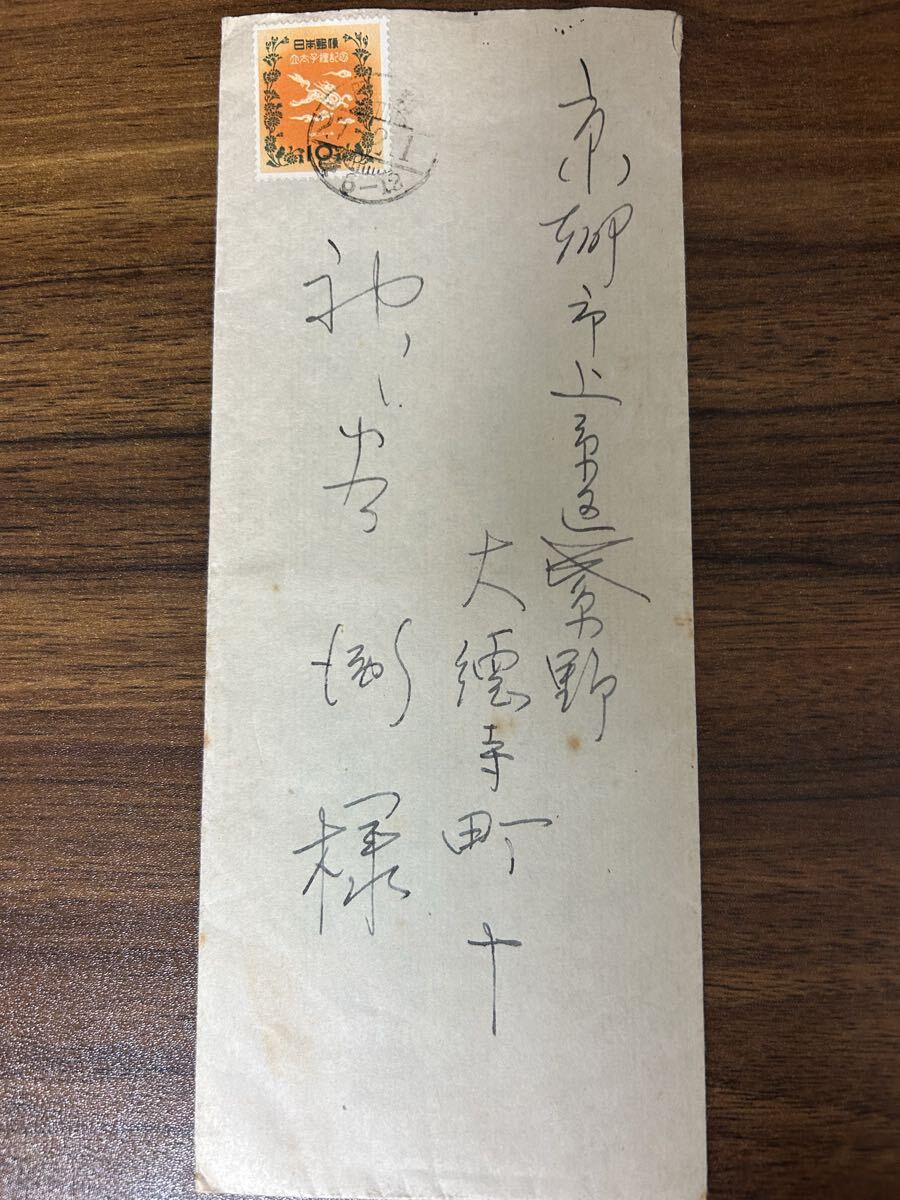 京都市上京区紫野
大徳寺町十
様
日本郵便
立太子禮記念
10
27
1
6-12